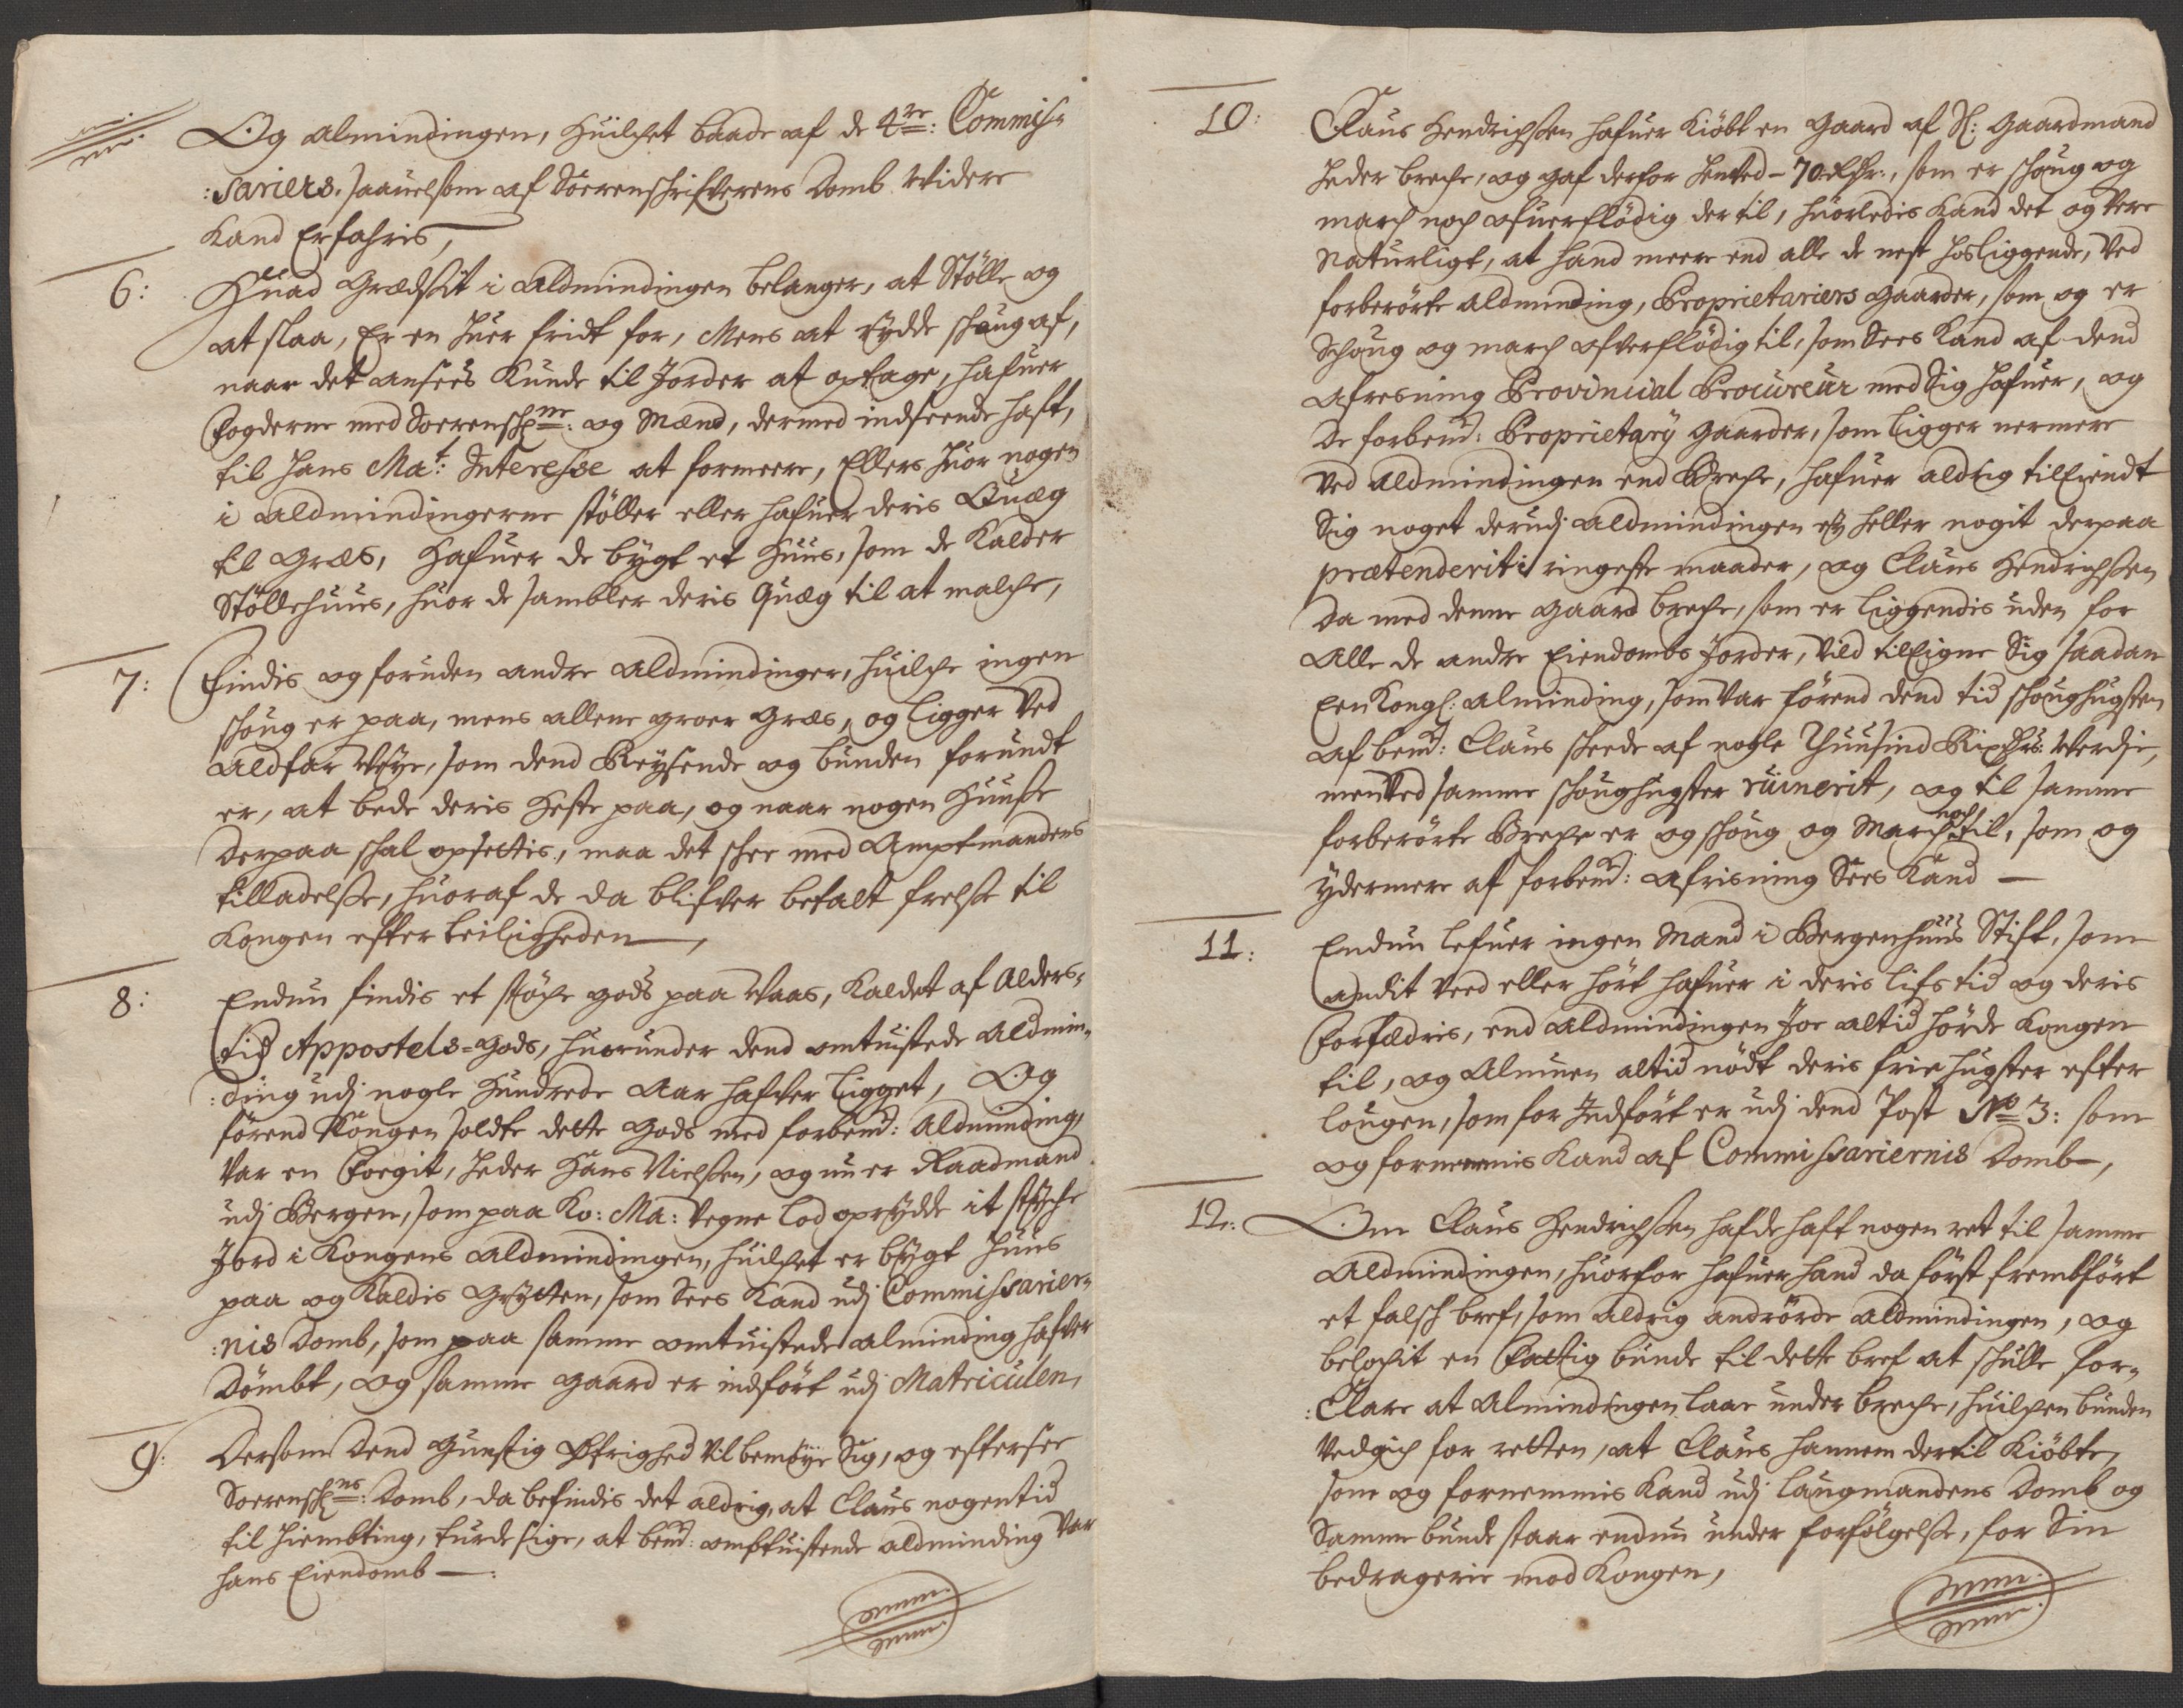 Og Almindingen, Huilchet baade af de 4re: Commis=
:sariers, saauelsom af Sorenschrifverens Domb Widere
Kand Erfahris,
6: Huad Græsset i Aldmindingen belanger, at Stölle og
at slaa, Er en huer fridt for, Mens at rydde schoug af,
naar det ansees Kunde til Jorder at optage, hafuer
Fogderne med Sorenschr: og Mænd, dermed indseende haft,
til Hans Mat: Interesse at formeere, Ellers huor nogen
i Aldmindingerne stöller eller hafuer deris Quæg
til Græs, Hafuer de bygt et Huus, som de Kalder
Stöllehuus, huor de sambler deris Quæg til at malche,
7: Findis og foruden andre Aldmindinger, huilche ingen
schoug er paa, mens allene groer Græs, og Ligger Ved
Aldfar Veye, som dend Reysende og bunden forundt
er, at bede deris Heste paa, og naar nogen Huuse
Derpaa schal opsettis, maa det schee med Amptmandens
tilladelse, huoraf de da blifver betalt frelse til
Kongen efter beiligheden,
8: Endnu findis et støche gods paa Waas, Kaldet af Alders=
tid Appostels=Gods, huorunder dend omtuistede Aldmin=
:ding udj nogle Hundrede Aar hafver Ligget, Og
førend Kongen soldte dette Gods med forbemt: Aldminding,
Var en Foegit, heder Hans Nielsen, og nu er Raadmand
udj Bergen, som paa Ko: Ma: Vegne Lod oprydde it støche
Jord i Kongens Aldmindingen, huilchet er bygt Huus
paa og Kaldis Grytten, som Sees Kand udj Commissarier=
:nis Domb, som paa samme omtuistede Alminding hafver
Dömbt, og samme Gaard er indfört udj Matriculen,
9: Dersom Dend Gunstig Øfrighed Vil bemöye Sig, og eftersee
Sorenschns: Domb, da befindis det aldrig, at Claus nogentid
til Hiembting, turde sige, at bemt: omtuistende Aldminding Var
hans Eiendomb:
10: Claus Hendrichsen hafuer Kiöbt en Gaard af Sl: Gaardmand
Heder Breche, og gaf derfor henved 70 Rdr:, som er schoug og
march noch ofuerflödig der til, huorledis Kand det og Vere
Naturligt, at hand meere end alle de nest hosliggende, Ved
forberörte Aldminding, Proprietariers Gaarder, som og er
Schoug og march ofverflödig til, som Sees Kand af dend
Afresning Provincial Procureur med Sig hafuer, og
De forbemt: Proprietary Gaarder, som Ligger nermere
Ved Aldmindingen end Breche, hafuer aldrig tilEiendt
Sig noget derudj Aldmindingen ey heller nogit derpaa
prætenderit i ringeste maader, og Claus Hendrichsen
Da med denne Gaard Breche, som er Liggendis uden for
Alle de andre Eiendombs Jorder, Vild tilEigne Sig saadan
Een Kongl: Alminding, som Var förend dend tid schoughugsten
af bemt: Claus scheede af nogle Thuusind Rixdlrs: Verdje,
men Ved samme schoughugster ruinerit, og til samme
forberörte Breche er og schoug og March noch til, som og
ydermere af forbemt: Afrisning Sees Kand
11: Endnu lefuer ingen Mand i Bergenhuus Stift, som
andit Veed eller hört hafuer i deris lifs tid og deris
Forfædris, end Aldmindingen Joe altid hörde Kongen
til, og Almuen altid nödt deris frie hugster efter
Lougen, som for Indfört er udj dend Post No 3: som
og fornemmis Kand af Commissariernis Domb,
12: Om Claus Hendrichsen hafde haft nogen ret til samme
Aldmindingen, huorfor hafuer hand da først frembfört
et falsch bref, som aldrig anrörde Aldmindingen, og
belochit en Fattig bunde til dette bref at schulle for=
:Clare at Almindingen Laae under Breche, huilchen bunden
Vedgich for retten, at Claus hannem dertil Kiöbte,
som og fornemmis Kand udj Laugmandens Domb og
Samme bunde staar endnu under forfölgelse, for Sin
bedragerie mod Kongen,